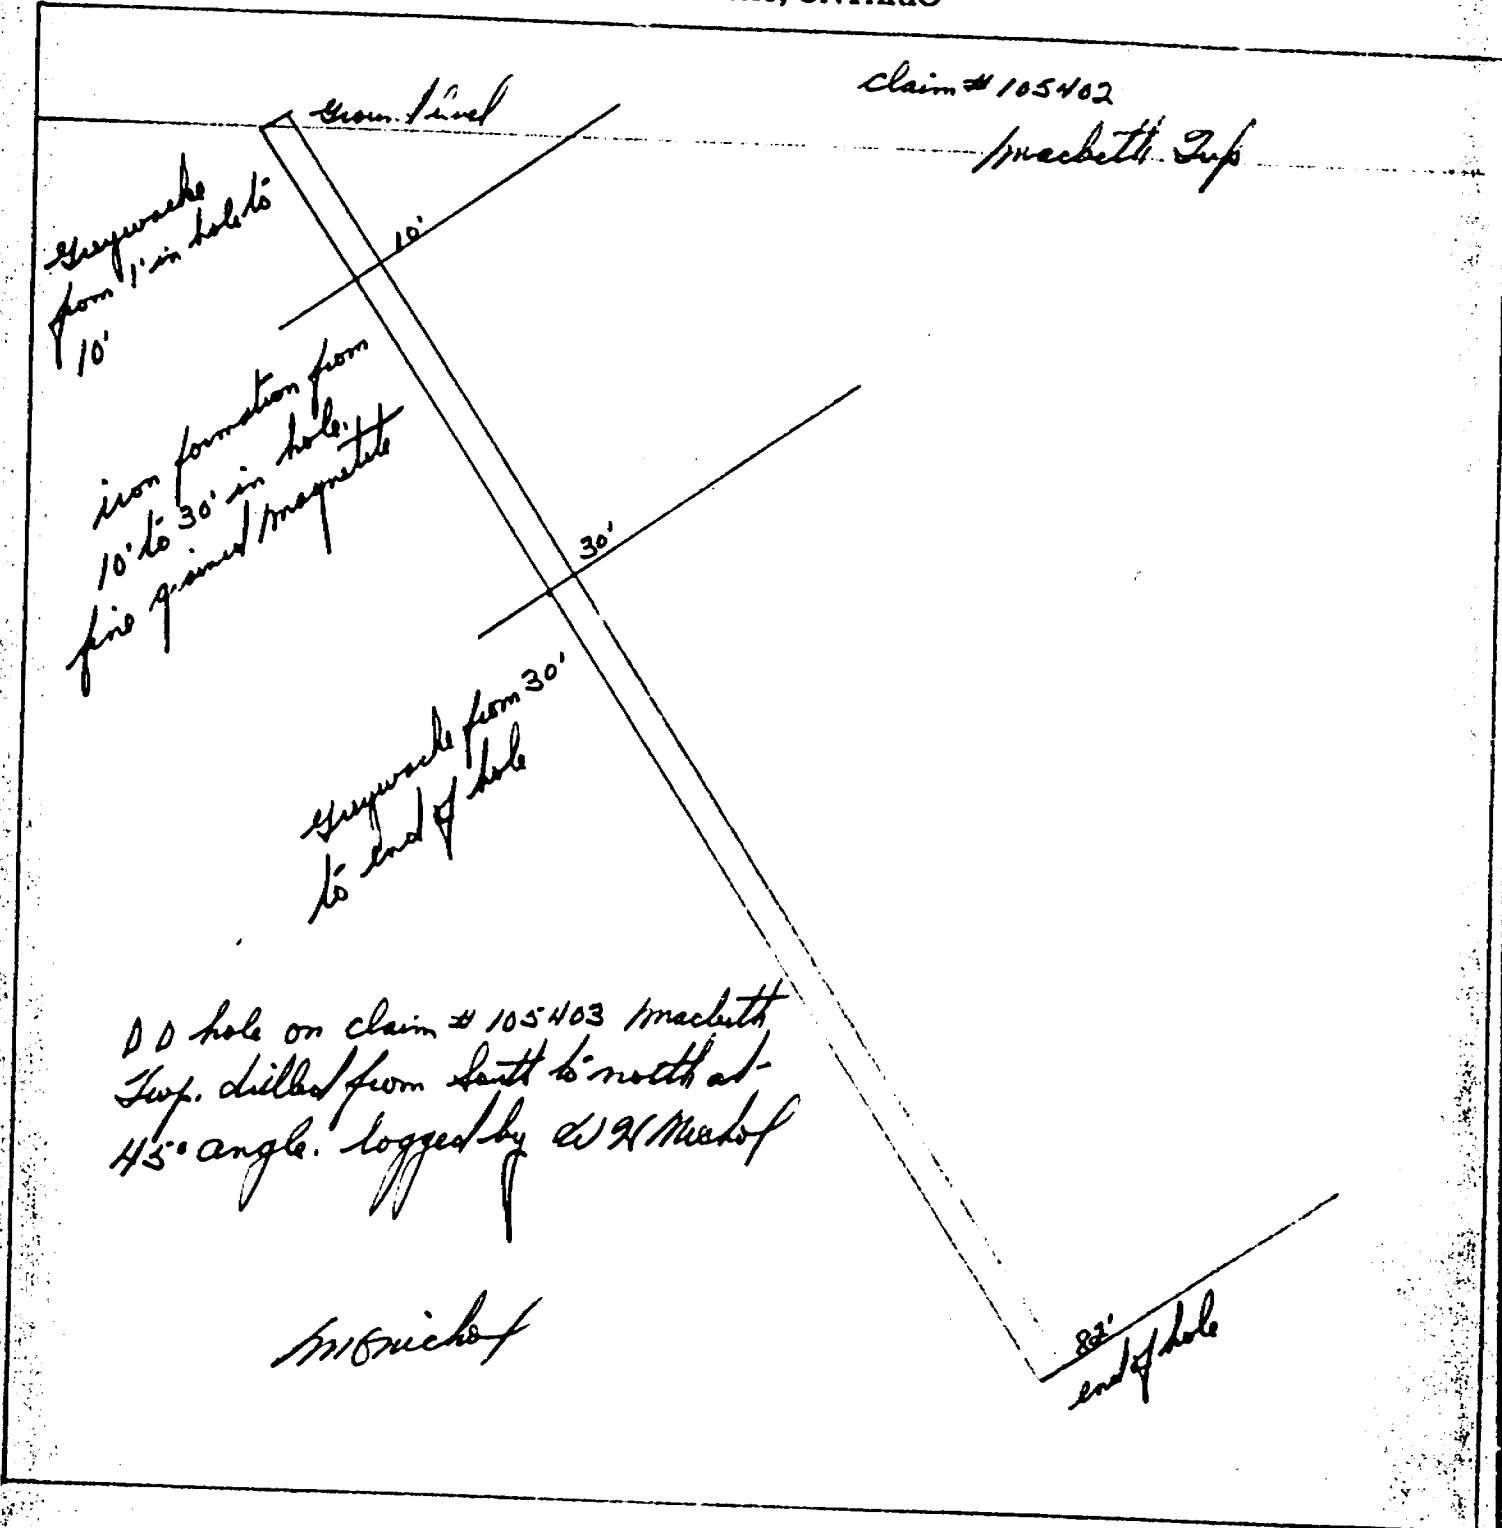 ONTARIO
claim # 105402
Macbeth Twp
Ground level
Greywacke
from 1' in hole to
10'
10'
iron formation from
10' to 30' in hole.
fine grained magnetite
30'
Greywacke from 30'
to end of hole
DD hole on claim # 105403 Macbeth
Twp. drilled from South to north at
45° angle. logged by W H
82'
end of hole